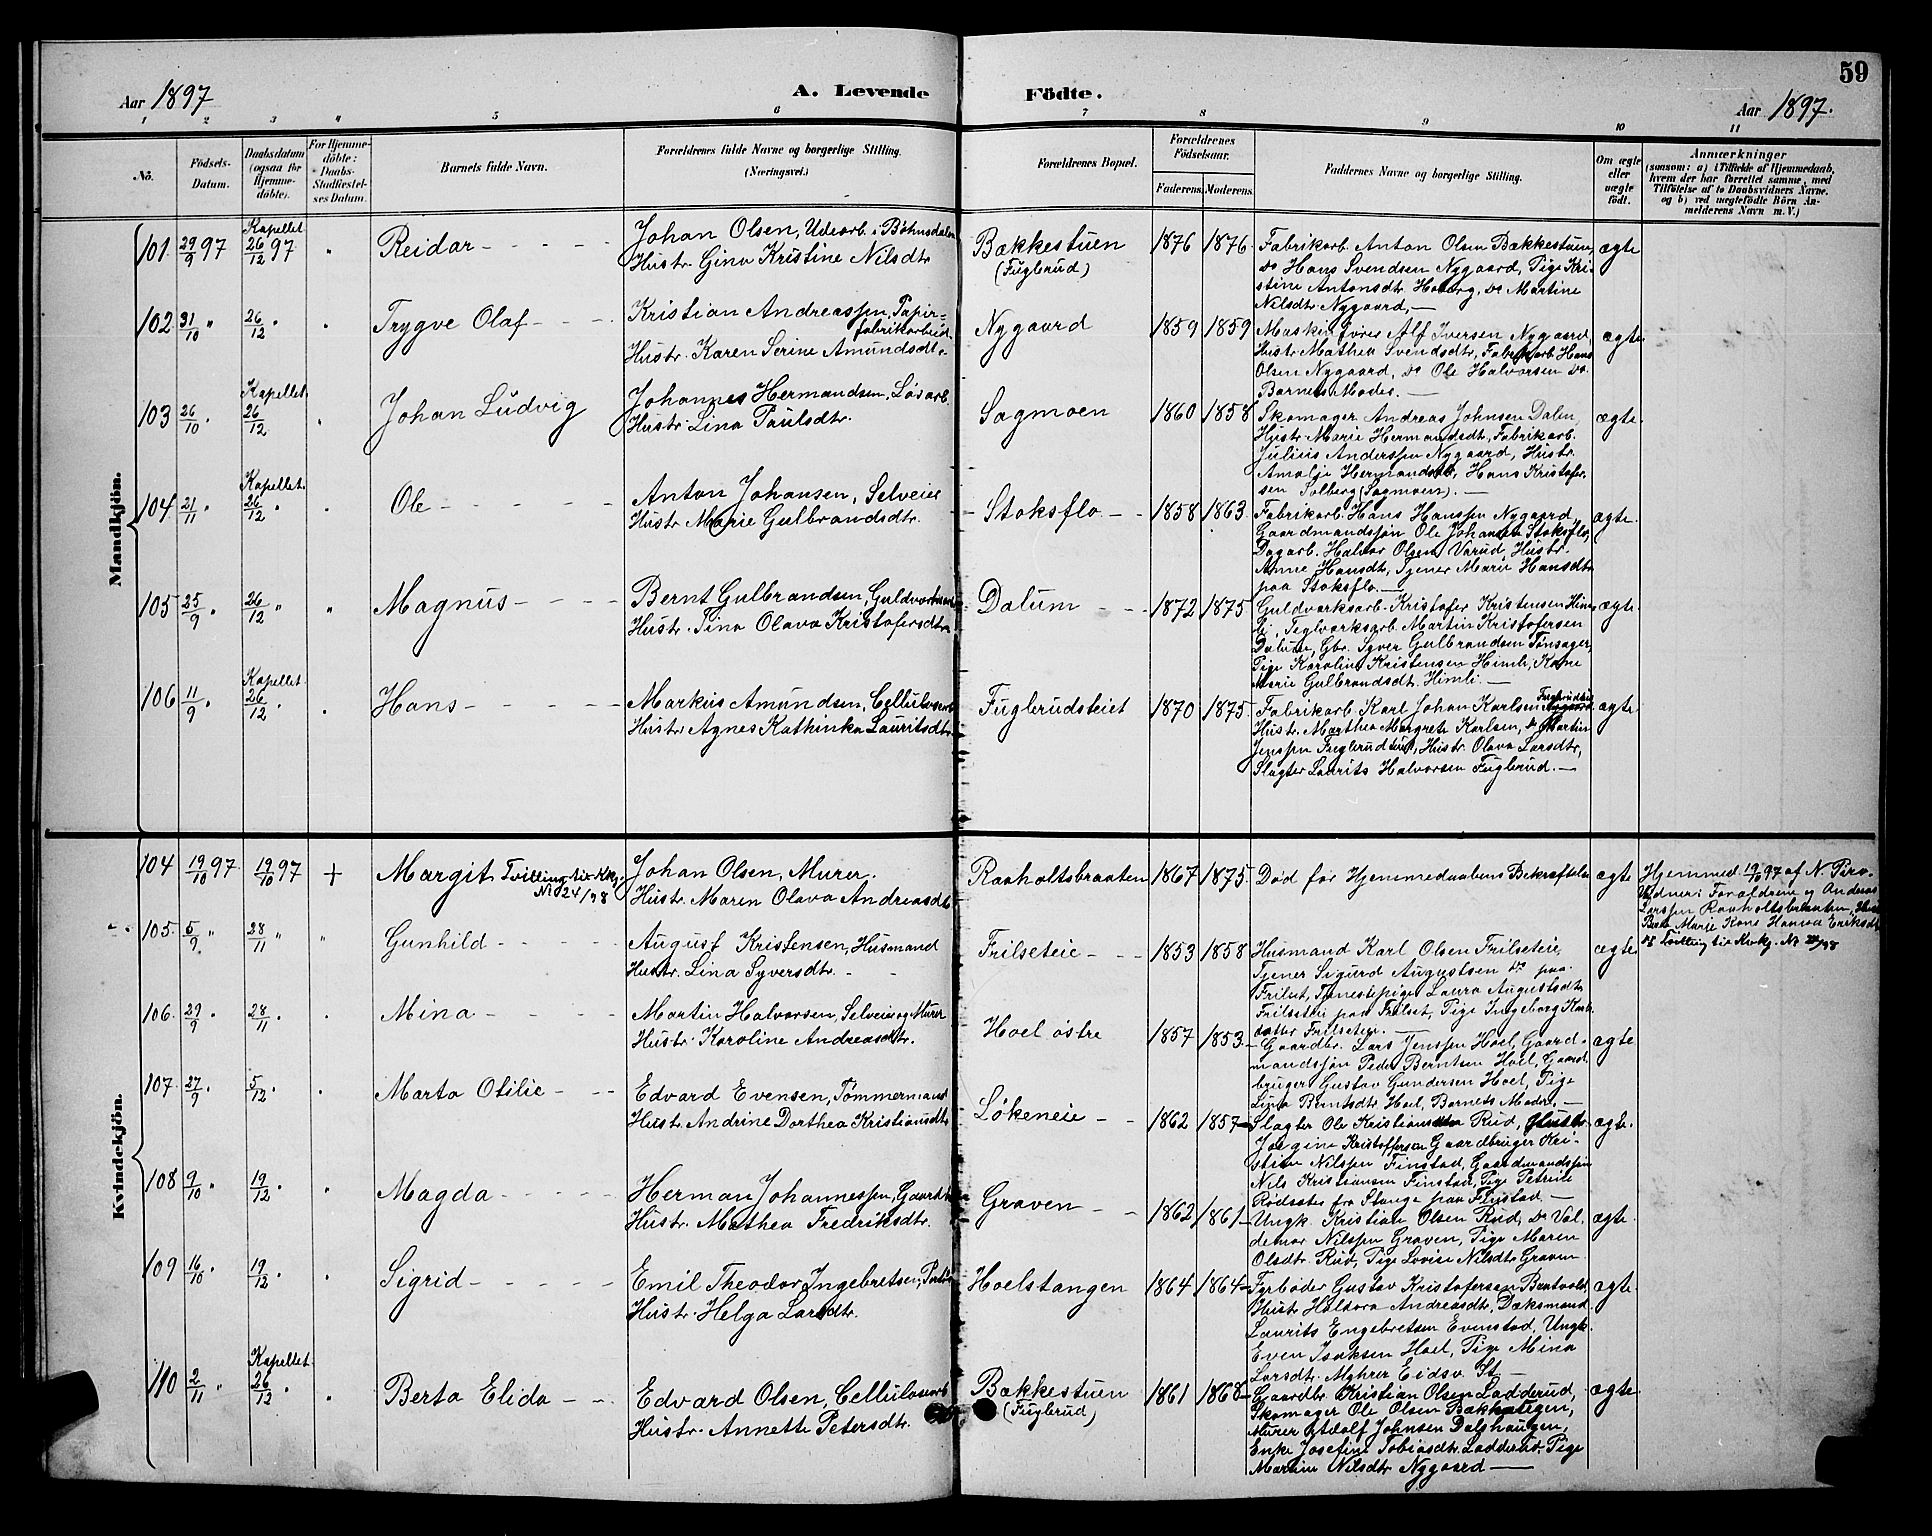 59
Aar 1897
A. Levende
Födte.
Aar 1897.
1 2 3 4 5 6 7 8 9 10 11
No.
Födsels-Datum.
Daabsdatum (ogsaa for Hjemme-döbte).
For Hjemme-döbte: Daabs-Stadfæstel-ses Datum.
Barnets fulde Navn.
Forældrenes fulde Navne og borgerlige Stilling. (Næringsvei.)
Forældrenes Bopæl.
Forældrenes Födselsaar.
Faderens. Moderens.
Faddernes Navne og borgerlige Stilling.
Om ægte eller uægte födt.
Anmærkninger
(saasom: a) i Tilfælde af Hjemmedaab, hvem der har forrettet samme, med Tilföielse af to Daabsvidners Navne. og b) ved uægtefödte Börn An-melderens Navn m. V.)
Mandkjön.
101. 29/9 97 Kapellet 26/12 97 " Reidar
Johan Olsen, Udearb. i Bøhnsdalen
Hustr. Gina Kristine Nilsdtr.
Bakkestuen (Fuglerud) 1876 1876
Fabrikarb. Anton Olsen Bakkestuen,
Do Hans Svendsen Nygaard, Pige Kri-
stine Antonsdtr. Hoberg, Do Martine
Nilsdtr. Nygaard.—
ægte
102. 31/10 " 26/12 " Trygve Olaf
Kristian Andreassen, Papir-
fabrikarbeid.
Hustr. Karen Serine Amundsdtr.
Nygaard 1859 1859
Maskinfører Alf Iversen Nygaard,
Hustr. Mathea Svendsdtr., Fabrikarb. Hans
Olsen Nygaard, Do Ole Halvorsen Do
Barnets Moder.—
ægte
103 26/10 " Kapellet 26/12 " Johan Ludvig
Johannes Hermandsen, Løsarb.
Hustr. Lina Paulsdtr.
Sagmoen 1860 1858
Skomager Andreas Johnsen Dalen,
Hustr. Marie Hermandsdt., Fabrikarb.
Julius Anderssen Nygaard, Hustr.
Amalie Hermandsdtr., Hans Kristofer-
sen Solberg (Sagmoen).—
ægte.
104. 21/11 " Kapellet. 26/12 " Ole
Anton Johansen, Selveier
Hustr. Marie Gulbrandsdtr.
Stoksflo 1858 1863
Fabrikarb. Hans Hanssen Nygaard,
Gaardmandssøn Ole Johansen Stoksflo,
Dagarb. Halvor Olsen Varud, Hustr.
Anne Hansdt., Tjener Marie Hansdtr.
paa Stoksflo.—
ægte.
105 25/9 " 26/12 " Magnus
Bernt Gulbrandsen, Guldverksarb.
Hustr. Tina Olava Kristofersdtr.
Dalum 1872 1875
Guldverksarb. Kristofer Kristensen Him-
li, Teglverksarb. Martin Kristofersen
Dalum, Gbr. Syver Gulbrandsen Tønsager,
Pige Karoline Kristensen Himli, Kone
Marie Gulbrandsdt. Himli.—
ægte.
106 11/9 " Kapellet 26/12 " Hans
Markus Amundsen, Cellulosearb.
Hustr. Agnes Kathinka Lauritsdtr.
Fuglerudsteiet 1870 1875
Fabrikarb. Karl Johan Karlsen
Hustr. Marthea Margrete Karlsen, Do Martin
Jenssen Fuglerudteiet, Hustr. Olava Larsdtr,
Slagter Laurits Halvorsen Fuglerud.—
ægte
Kvindekjön.
104 19/10 97 19/10 97 + Margit Tvilling til Kkbg. No 24/98
Johan Olsen, Murer.
Hustr. Maren Olava Andreasdt.
Raaholtsbraaten 1867 1875
Død før Hjemmedaabens Bekræftelse
ægte
Hjemmed. 19/10 97 af N. Piro.
Vidner: Forældrene og Anders
Larssen Raaholtsbraaten,
Berte Marie Kone Hanna Eriksdt.
Tvilling til Kirkg. No 24/98
105. 5/9 " 28/11 " " Gunhild
August Kristensen, Husmand
Hustr. Lina Syversdtr.
Frilseteie 1853 1858
Husmand Karl Olsen Frilseteie,
Tjener Sigurd Augustsen Do paa
Frilset, Tjenestepige Laura Augustsdt.
Frilseteie paa Frilset, Pige Ingeborg
datter Frilseteie.—
ægte
106. 29/9 " 28/11 " Mina
Martin Halvorsen, Selveier og Murer
Hustr. Karoline Andreasdtr.
Hoel østre 1857 1853
Gaardbr. Lars Jenssen Hoel, Gaard-
mandssøn Peder Berntsen Hoel, Gaard-
bruger Gustav Gundersen Hoel, Pige
Lina Berntsdtr. Hoel, Barnets Moder.—
ægte
107. 27/9 " 5/12 " Marta Otilie
Edvard Evensen, Tømmermand
Hustr. Andrine Dorthea Kristiansdt.
Løkeneie 1862 1857
Slagter Ole Kristiansen Rud, Hustr.
Jørgine Kristoffersen Gaardbruger Kri-
stian Nilssen Finstad, Gaardmandssøn
Nils Kristiansen Finstad, Pige Petrine
Rødsæter fra Stange paa Finstad.—
ægte.
108 9/10 " 19/12 " Magda
Herman Johannessen, Gaardbr.
Hustr. Mathea Fredriksdtr.
Graven 1862 1861
Ungk. Kristian Olsen Rud, Do Val-
demar Nilssen Graven, Pige Maren
Olsdtr. Rud, Pige Lovise Nilsdtr. Graven
ægte.
109 16/10 " 19/12 " Sigrid
Emil Theodor Ingebretsen,
Hustr. Helga Larsdtr.
Hoelstangen 1864 1864
Fyrbøder Gustav Kristofersen
Hustr. Haldora Andreasdtr, Dæksmand
Laurits Engebretsen Evenstad, Ungk.
Even Isaksen Hoel, Pige Mina
Larsdtr. Myhrer Eidsv. St.—
ægte.
110 2/11 " Kapellet 26/12 " Berta Elida
Edvard Olsen, Cellulosearb.
Hustr. Annette Petersdtr.
Bakkestuen (Fuglerud) 1861 1868
Gaardbr. Kristian Olsen Ladderud,
Skomager Ole Olsen
Murer Adolf Johnsen Dalshaugen,
Enke Josefine Tobiasdtr. Ladderud, Pige
Martine Nilsdtr Nygaard—
ægte.